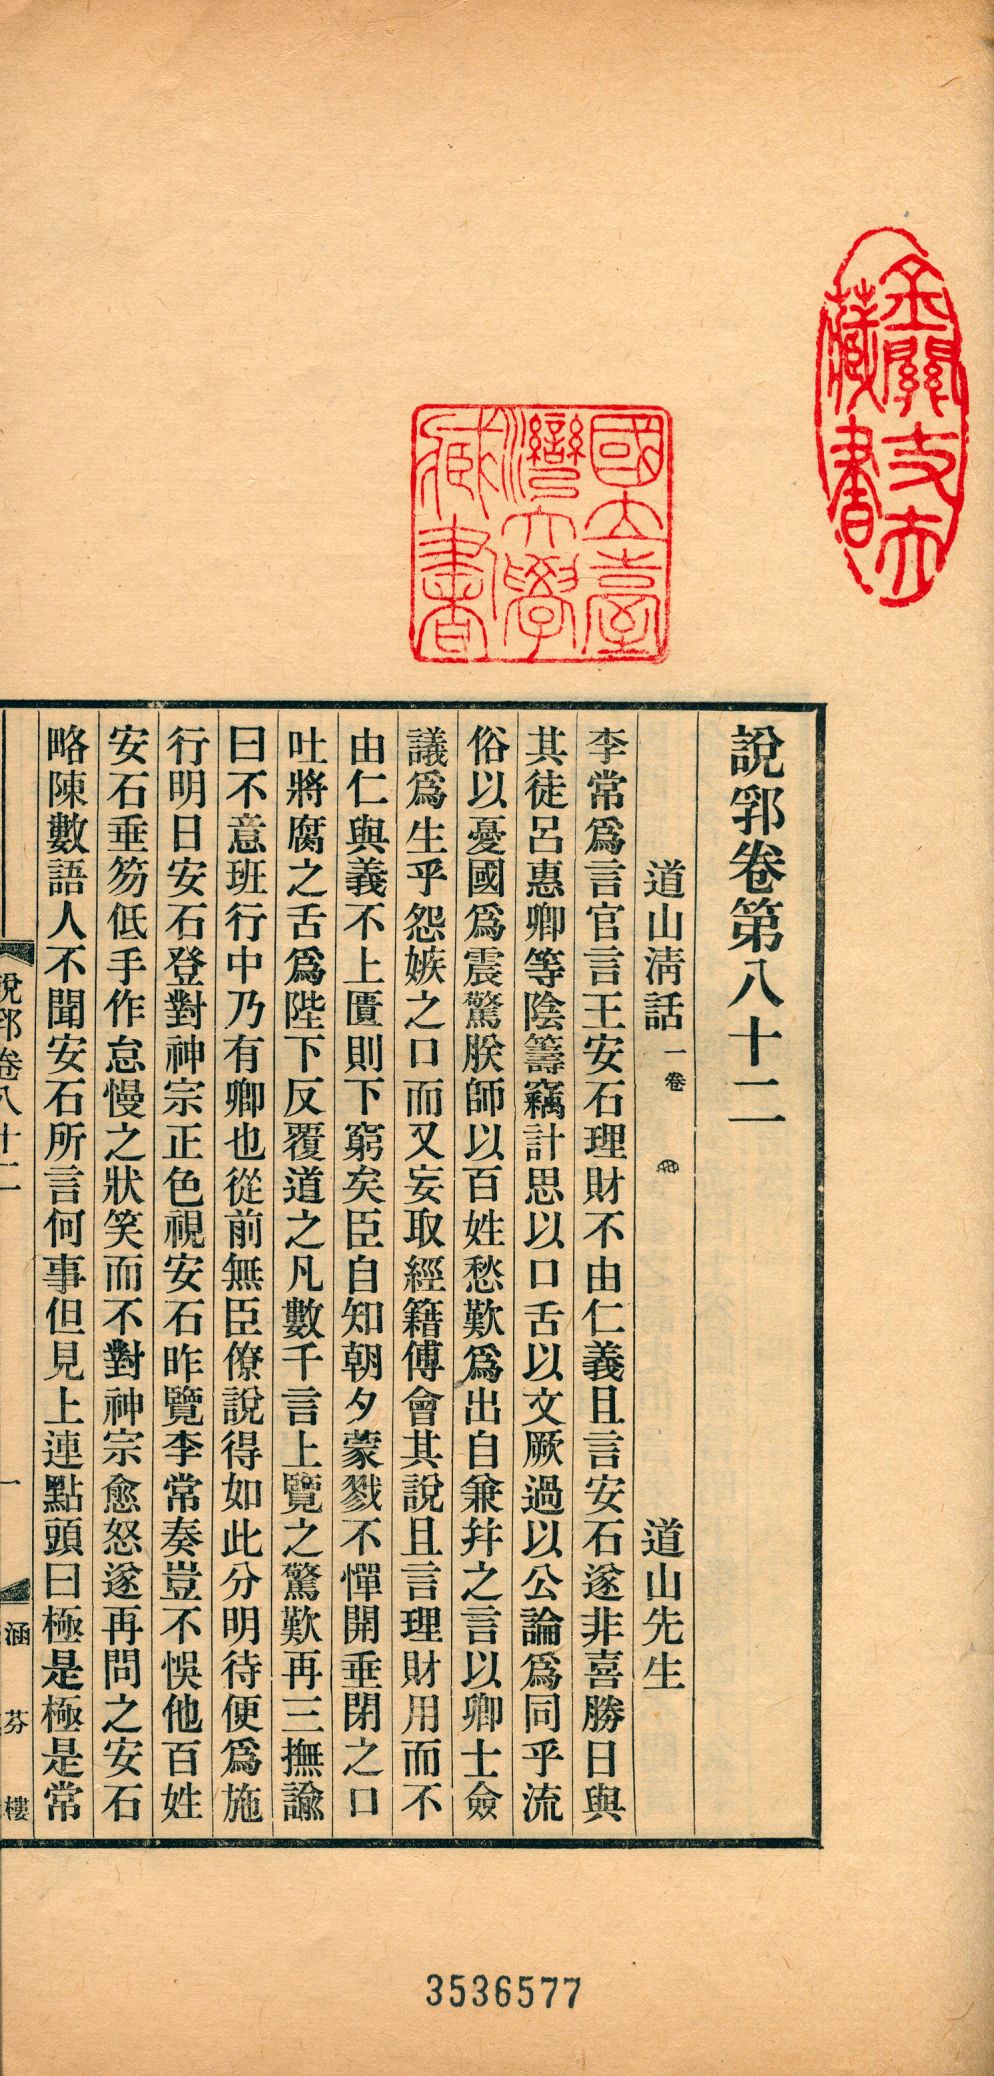 說郛卷第八十二
道山淸話 一卷 道山先生
李常爲言官言王安石理財不由仁義且言安石遂非喜勝日與
其徒呂惠卿等陰籌竊計思以口舌以文厥過以公論爲同乎流
俗以憂國爲震驚朕師以百姓愁歎爲出自兼幷之言以卿士僉
議爲生乎怨嫉之口而又妄取經籍傅會其說且言理財用而不
由仁與義不上匱則下窮矣臣自知朝夕蒙戮不憚開垂閉之口
吐將腐之舌爲陛下反覆道之凡數千言上覽之驚歎再三撫諭
曰不意班行中乃有卿也從前無臣僚說得如此分明待便爲施
行明日安石登對神宗正色視安石昨覽李常奏豈不悞他百姓
安石垂笏低手作怠慢之狀笑而不對神宗愈怒遂再問之安石
略陳數語人不聞安石所言何事但見上連點頭曰極是極是常
說郛卷八十二 一 涵芬樓
國立臺
灣大學
藏書
藏書
3536577